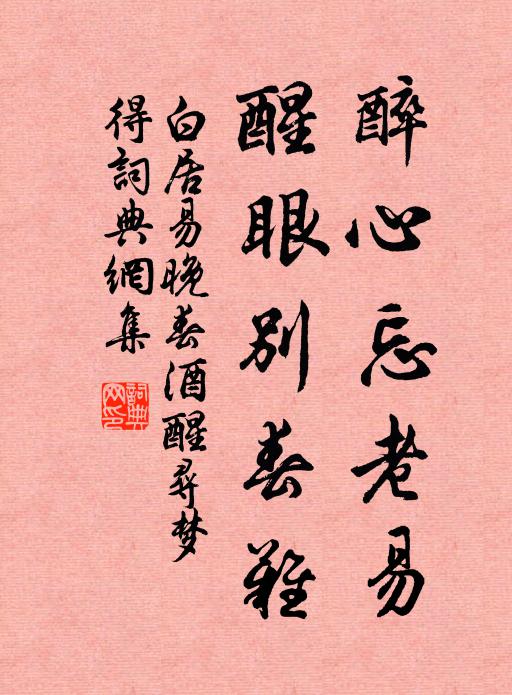 醉心忘老易
醒眼別春難
白居易晚春酒醒尋梦
得詞典網集
詞典网印